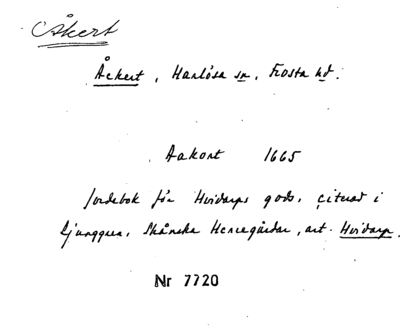 Åkert
Åkert, Harlösa sn, Frosta hd.
Aakort 1665
Jordebok för Hviderups gods, citerad i
Ljunggren, Skånska Herregårdar, art. Hviderup.
Nr 7720